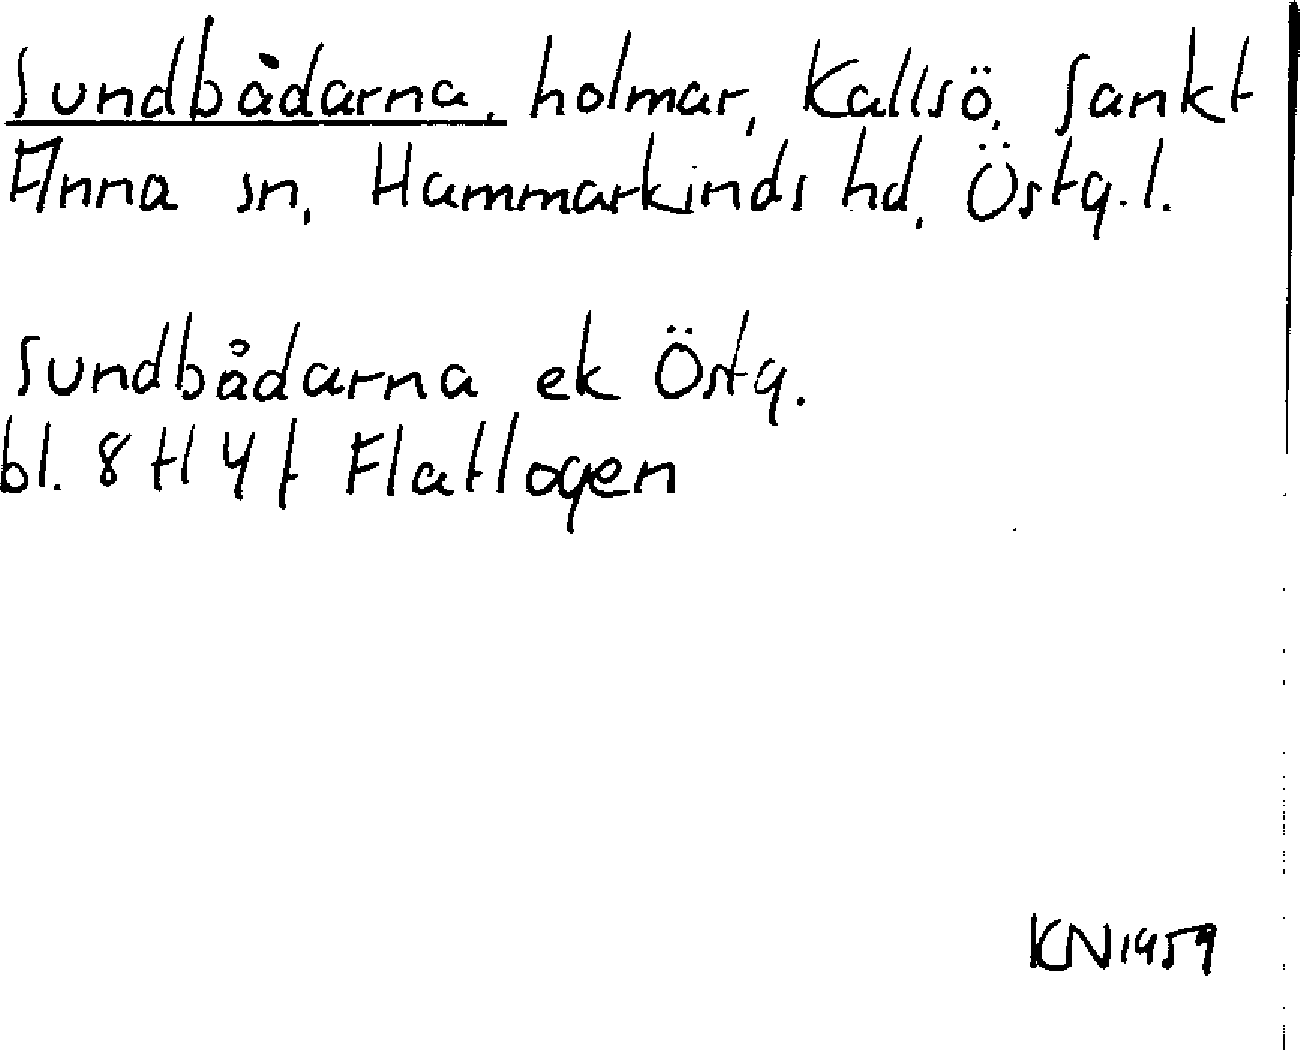 Sundbådarna, holmar, Kallsö, Sankt
Anna sn, Hammarkinds hd, Östg.l.
Sundbådarna ek Östg.
bl. 8 H 4 f Flatlogen
KN 1959